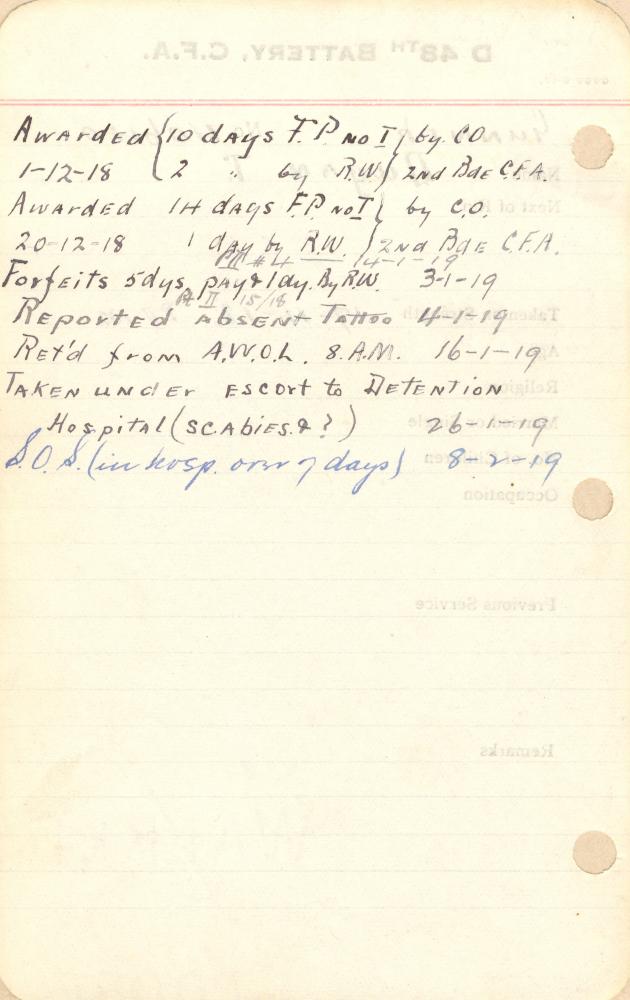 Awarded { 10 days F.P. No I } by C.O.
1-12-18 { 2 " by R.W. } 2nd Bde C.F.A.
Awarded 14 days F.P. No I } by C.O.
20-12-18 1 day by R.W. } 2nd Bde C.F.A.
Pt II # 4 4-1-19
Forfeits 5 dys. pay & 1 dy. By R.W. 3-1-19
Pt II 15/18
Reported absent Tattoo 4-1-19
Ret'd from A.W.O.L. 8. A.M. 16-1-19
Taken under escort to Detention
Hospital (scabies & ?) 26-1-19
S.O.S. (in hosp. over 7 days) 8-2-19